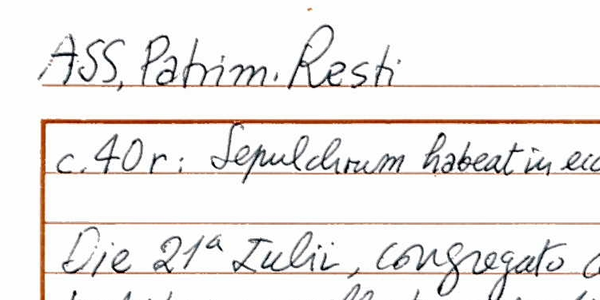 ASS, Patrim. Resti
c. 40 r: Sepulchrum habeat in
Die 21ª Iulii, congregato